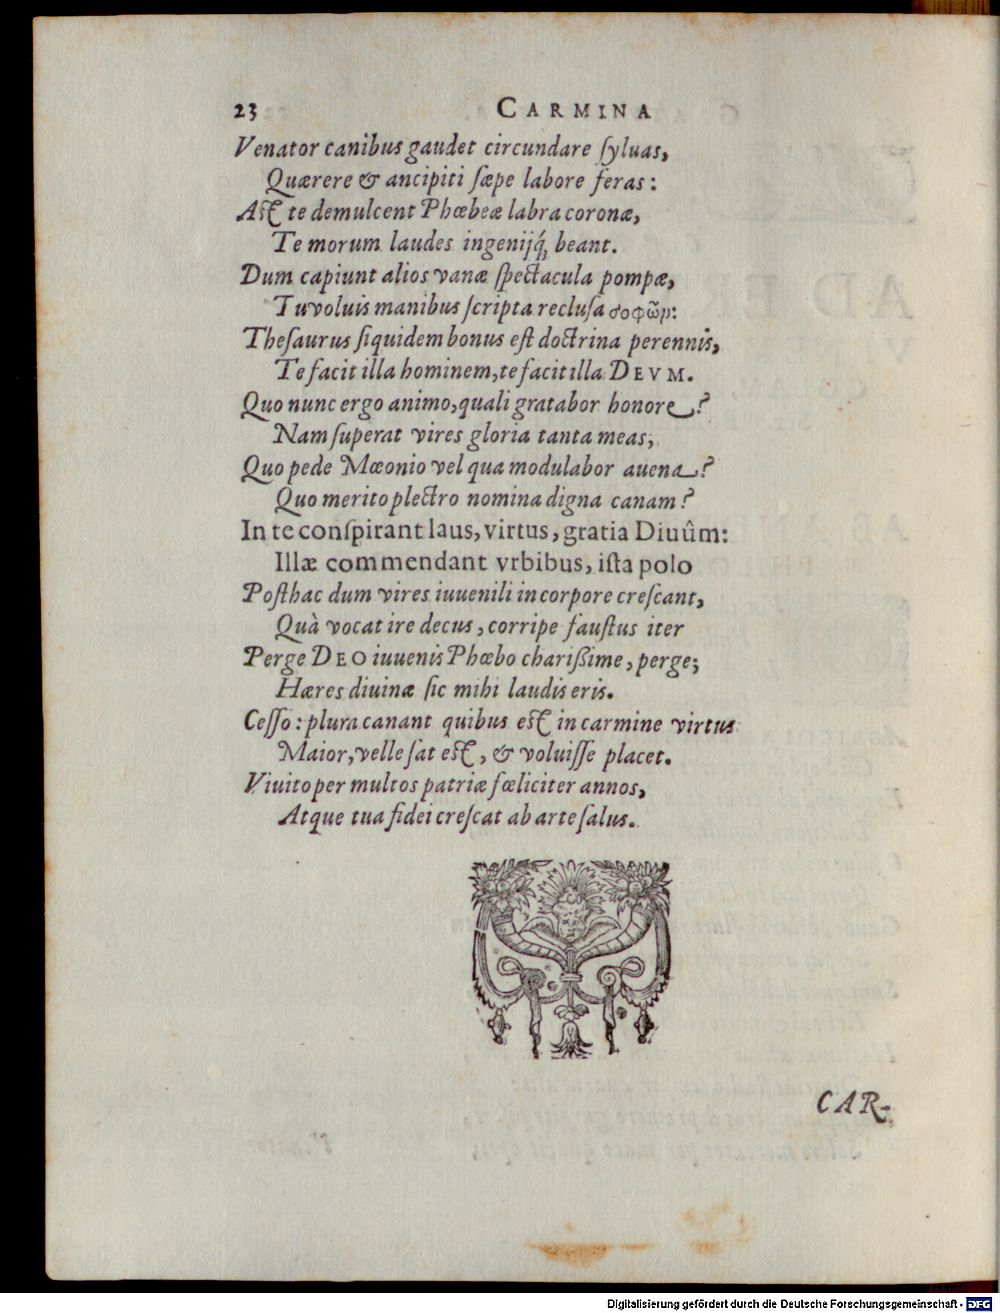 23 CARMINA
Venator canibus gaudet circundare ſyluas,
Quærere & ancipiti ſæpe labore feras:
Aſt te demulcent Phœbeæ labra coronæ,
Te morum laudes ingenijq́; beant.
Dum capiunt alios vanæ ſpectacula pompæ,
Tu voluis manibus ſcripta recluſa σοφῶν:
Theſaurus ſiquidem bonus eſt doctrina perennis,
Te facit illa hominem, te facit illa DEVM.
Quo nunc ergo animo, quali gratabor honore?
Nam ſuperat vires gloria tanta meas,
Quo pede Mæonio vel qua modulabor auena?
Quo merito plectro nomina digna canam?
In te conſpirant laus, virtus, gratia Diuûm:
Illæ commendant vrbibus, iſta polo
Poſthac dum vires iuuenili in corpore creſcant,
Quà vocat ire decus, corripe fauſtus iter
Perge DEO iuuenis Phœbo charißime, perge;
Hæres diuinæ ſic mihi laudis eris.
Ceſſo: plura canant quibus eſt in carmine virtus
Maior, velle ſat eſt, & voluiſſe placet.
Viuito per multos patriæ fœliciter annos,
Atque tua fidei creſcat ab arte ſalus.
CAR-
Digitalisierung gefördert durch die Deutsche Forschungsgemeinschaft - DFG